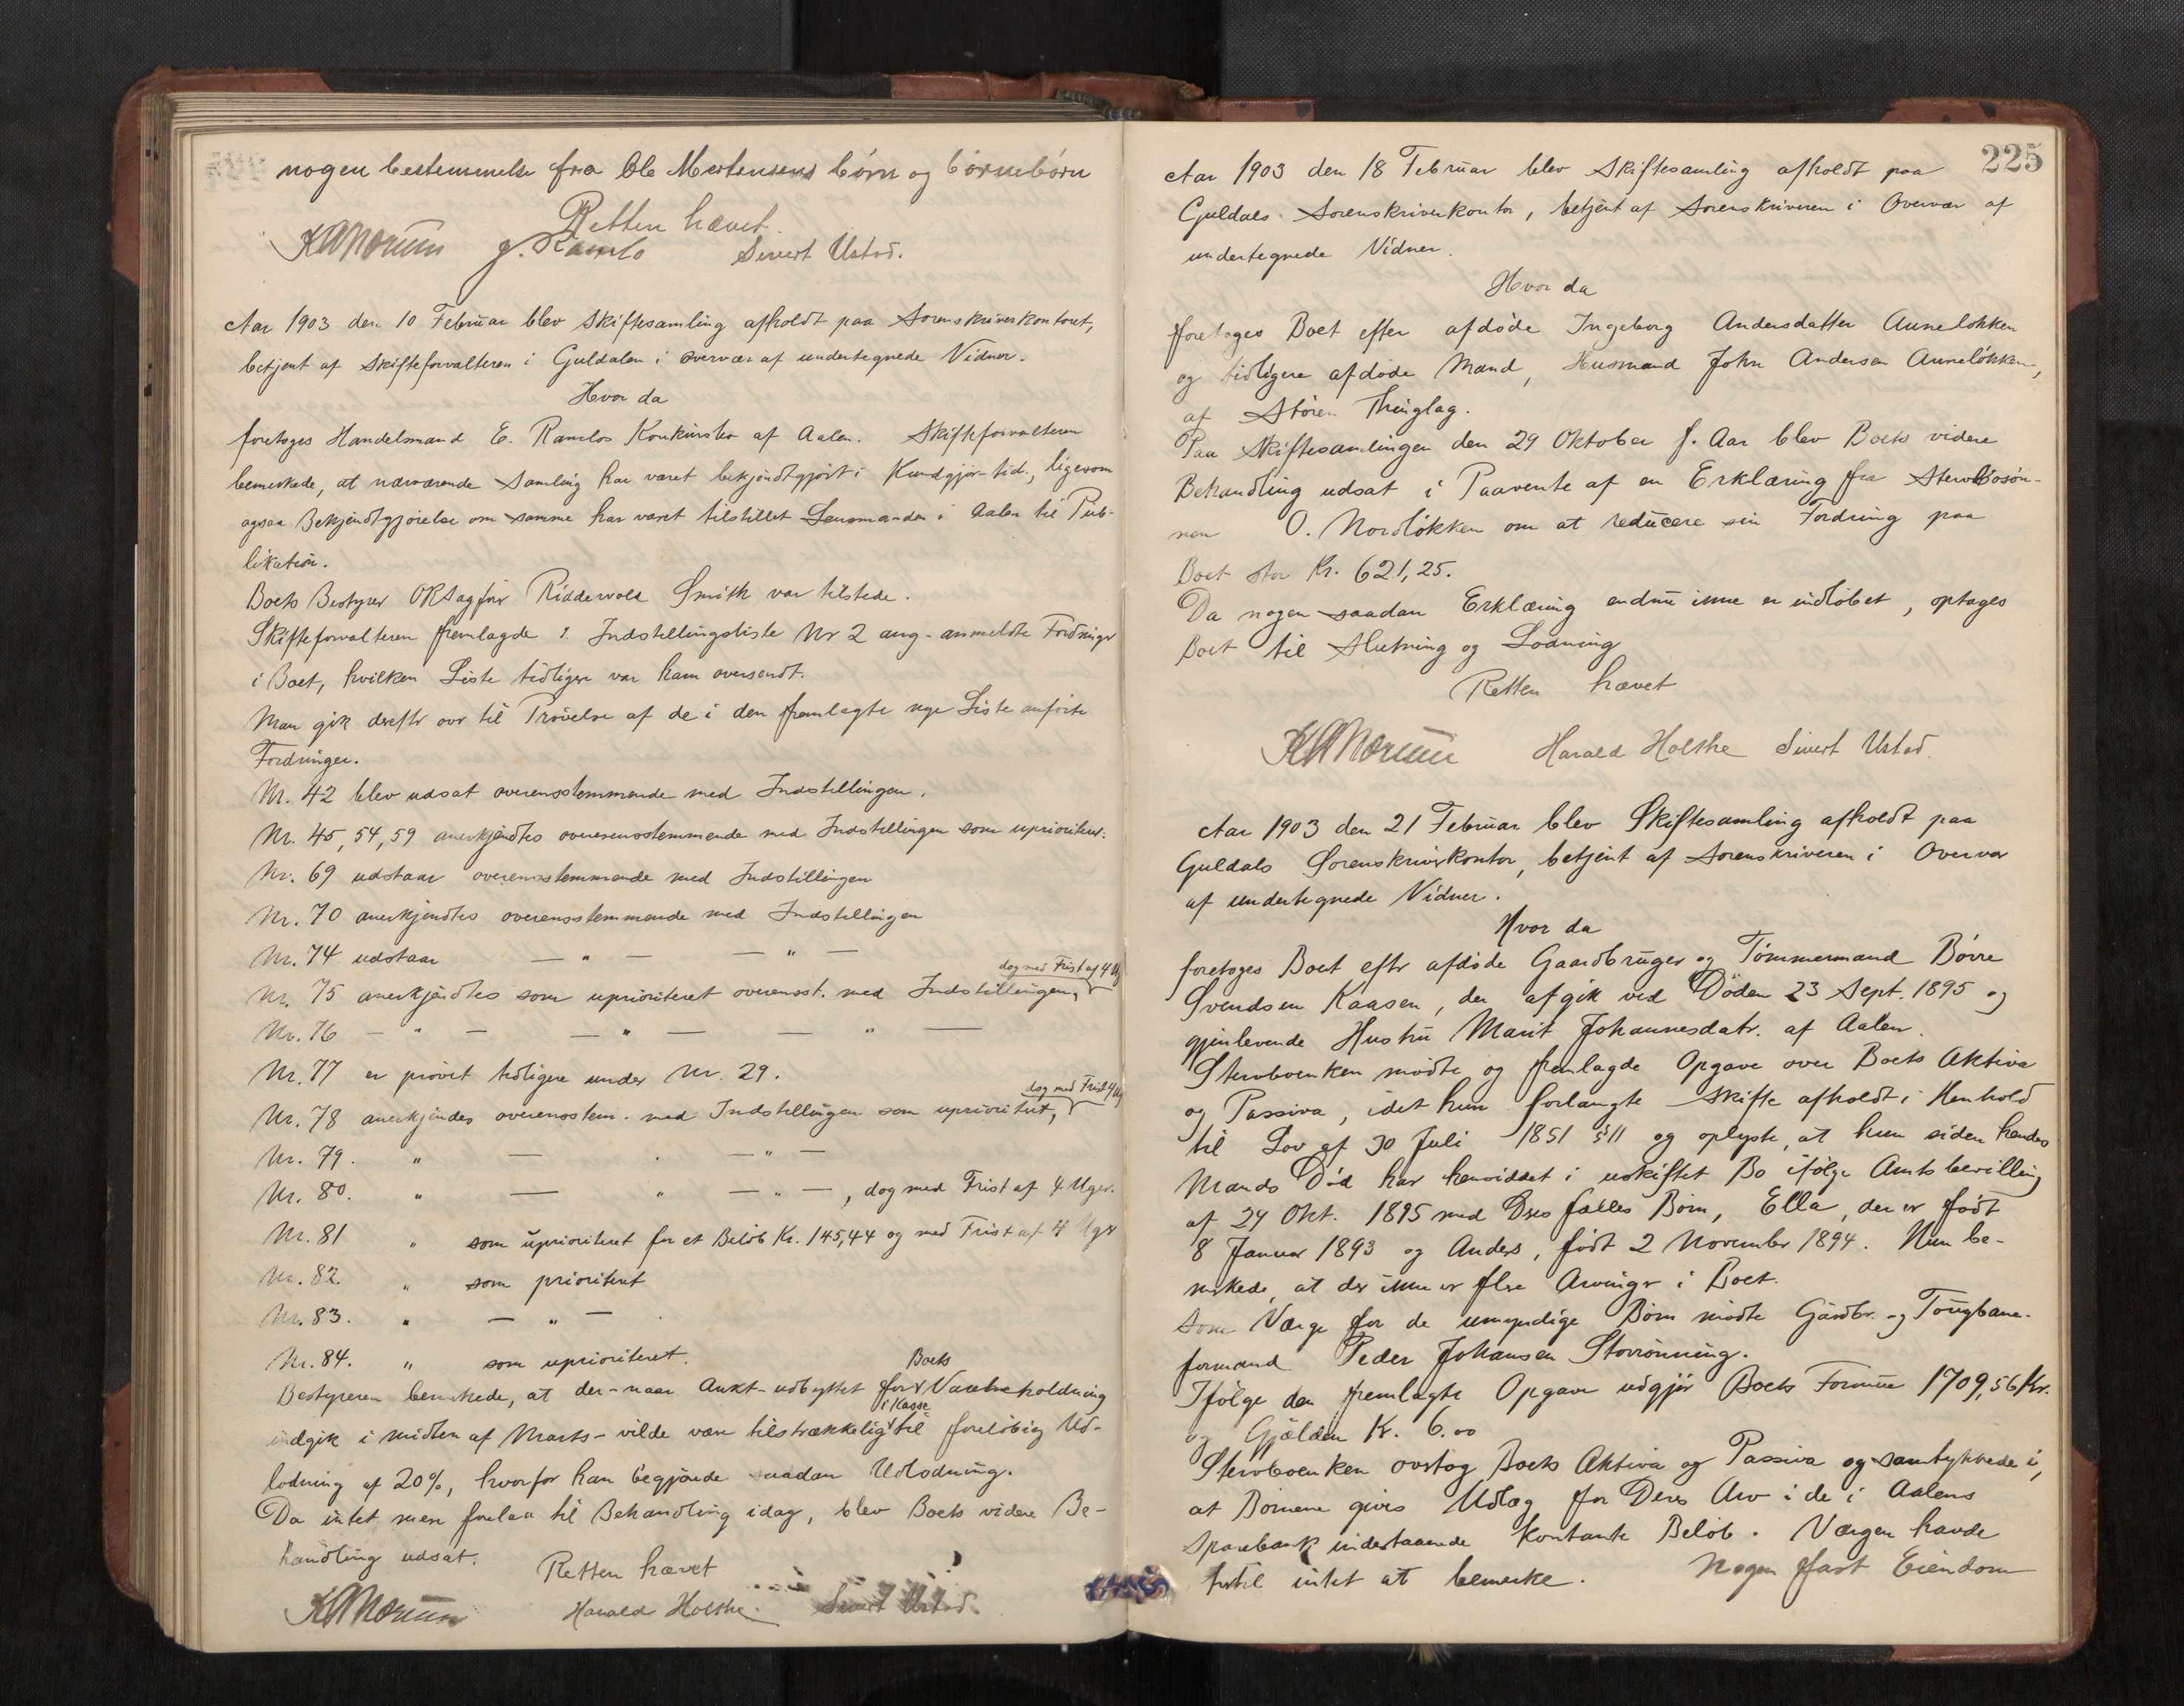 nogen bestemmelse fra Ole Mortensens børn og børnebørn
Retten hævet.
KANorum J. Ramlo Sivert Ustad.
Aar 1903 den 10 Februar blev Skiftesamling afholdt paa Sorenskriverkontoret,
betjent af Skifteforvalteren i Guldalen i overvær af undertegnede Vidner.
Hvor da
foretoges Handelsmand E. Ramlos Konkursbo af Aalen. Skifteforvalteren
bemerkede, at nærværende Samling har været bekjendtgjort i Kundgjør-tid., ligesom
ogsaa Bekjendtgjørelse om samme har været tilstillet Lensmanden i Aalen til Pub-
likation.
Boets Bestyrer ORSagfør Ridderwold Smith var tilstede.
Skifteforvalteren fremlagde 1. Indstillingsliste Nr 2 ang- anmeldte Fordringer
i Boet, hvilken Liste tidligere var ham oversendt.
Man gik derefter over til Prøvelse af de i den fremlagte nye Liste anførte
Fordringer.
Nr. 42 blev udsat overensstemmende med Indstillingen.
Nr. 45, 54, 59 anerkjendtes overensstemmende med Indstillingen som uprioriteret.
Nr. 69 udstaar overensstemmende med Indstillingen
Nr. 70 anerkjendtes overensstemmende med Indstillingen
Nr. 74 udstaar — " — — " —
dog med Frist af 4 Ug
Nr. 75 anerkjendtes som uprioriteret overensst. med Indstillingen,
Nr. 76 — " — — " — — " —
Nr. 77 er prøvet tidligere under Nr. 29.
dog med Frist 4 Ug
Nr. 78 anerkjendes overensstem. med Indstillingen som uprioritert,
Nr. 79. " — . — " —
Nr. 80. " — " — " —, dog med Frist af 4 Uger.
Nr. 81 " som uprioriteret for et Beløb Kr. 145,44 og med Frist af 4 Uger
Nr. 82 " som prioriteret
Nr. 83. " — " —
Nr. 84. " som uprioriteret.
Boets
Bestyreren bemerkede, at der - naar Aukt- udbyttet for Varebeholdning
i Kasse
indgik i Midten af Marts - vilde være tilstrækkelig til foreløbig Ud-
lodning af 20%, hvorfor han begjærede saadan Udlodning.
Da intet mere forelaa til Behandling idag, blev Boets videre Be-
handling udsat. Retten hævet
KANorum Harald Holthe. Sivert Ustad.
225
Aar 1903 den 18 Februar blev Skiftesamling afholdt paa
Guldals Sorenskriverkontor, betjent af Sorenskriveren i Overvær af
undertegnede Vidner.
Hvor da
foretoges Boet efter afdøde Ingeborg Andersdatter Auneløkken
og tidligere afdøde Mand, Husmand John Andersen Auneløkken,
af Støren Thinglag.
Paa Skiftesamlingen den 29 Oktober f. Aar blev Boets videre
Behandling udsat i Paavente af en Erklæring fra Stervbosøn-
nen O. Nordløkken om at reducere sin Fordring paa
Boet stor Kr. 621,25.
Da nogen saadan Erklæring endnu ikke er indløbet, optages
Boet til Slutning og Lodning
Retten hævet
KANorum Harald Holthe Sivert Ustad.
Aar 1903 den 21 Februar blev Skiftesamling afholdt paa
Guldals Sorenskriverkontor, betjent af Sorenskriveren i Overvær
af undertegnede Vidner.
Hvor da
foretoges Boet efter afdøde Gaardbruger og Tømmermand Børre
Svendsen Kaasen, der afgik ved Døden 23 Sept. 1895 og
gjenlevende Hustru Marit Johannesdatr. af Aalen.
Stervboenken mødte og fremlagde Opgave over Boets Aktiva
og Passiva, idet hun forlangte Skifte afholdt i Henhold
til Lov af 30 Juli 1851 §11 og oplyste, at hun siden hendes
Mands Død har hensiddet i uskiftet Bo ifølge Amtsbevilling
af 24 Okt. 1895 med Deres fælles Børn, Ella, der er født
8 Januar 1893 og Anders, født 2 November 1894. Hun be-
merkede, at der ikke er flere Arvinger i Boet.
Som Værge for de umyndige Børn mødte Gårdbr. og Tougbane-
formand Peder Johansen Storrønning.
Ifølge den fremlagte Opgave udgjør Boets Formue 1709,56 Kr.
og Gjælden Kr. 6.00
Stervboenken overtog Boets Aktiva og Passiva og samtykkede i,
at Børnene gives Udlæg for Deres Arv i de i Aalens
Sparebank indestaaende Kontante Beløb. Værgen havde
hertil intet at bemerke. Nogen fast Eiendom